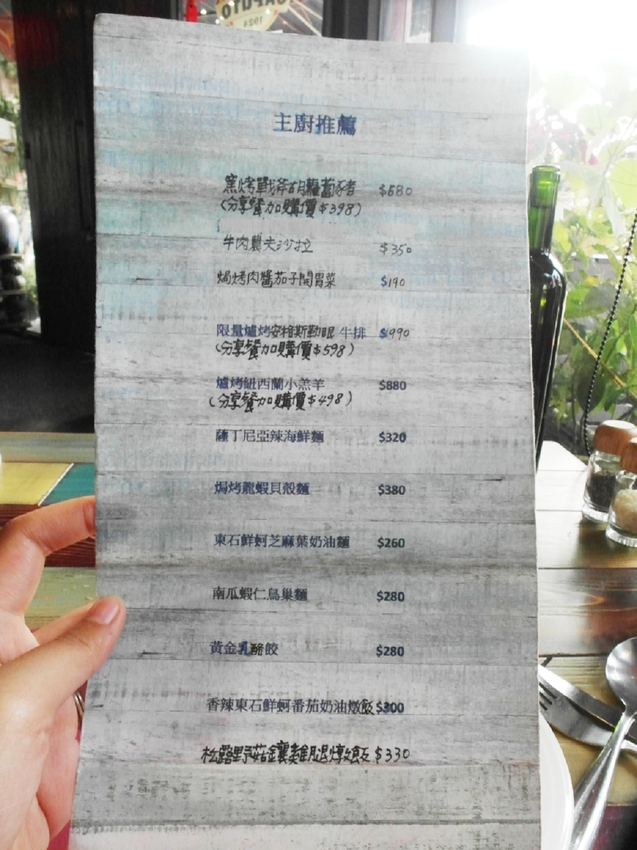 SAPUTO
1924
主廚推薦
窯烤戰斧胡蘿蔔豬 $580
(分享餐加購價$398)
牛肉薯夫沙拉 $350
焗烤肉醬茄子開胃菜 $190
限量爐烤安格斯肋眼牛排 $990
(分享餐加購價$598)
爐烤紐西蘭小羔羊 $880
(分享餐加購價$498)
薩丁尼亞辣海鮮麵 $320
焗烤龍蝦貝殼麵 $380
東石鮮蚵芝麻葉奶油麵 $260
南瓜蝦仁鳥巢麵 $280
黃金乳酪餃 $280
香辣東石鮮蚵番茄奶油燉飯 $300
松露野菇鑲雞腿燉飯 $330